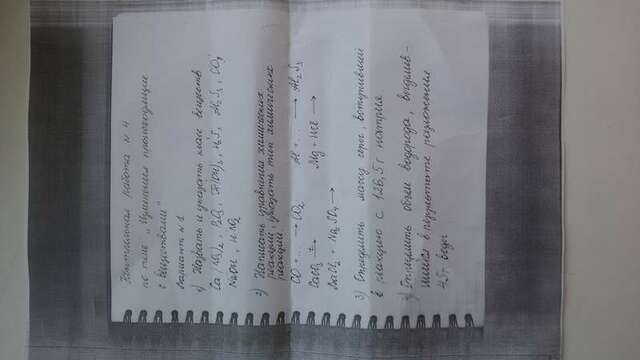 Контрольная работа № 4
по теме „Изменения происходящие
с веществами"
Вариант № 1
1) Назвать и указать класс веществ
Ca(NO3)2, P2O5, Fe(OH)3, H2S, Al2S3, CO2
NaOH, HNO3
2) Написать уравнения химических
реакций, указать тип химических
реакций
CO + ... → CO2 Al + ... → Al2S3
CaCO3 t→ Mg + HCl →
BaCl2 + Na2SO4 →
3) Определить массу серы, вступившей
в реакцию с 126,5 г натрия
4) Определить объем водорода, выделив-
шийся в результате разложения
4,5 г. воды